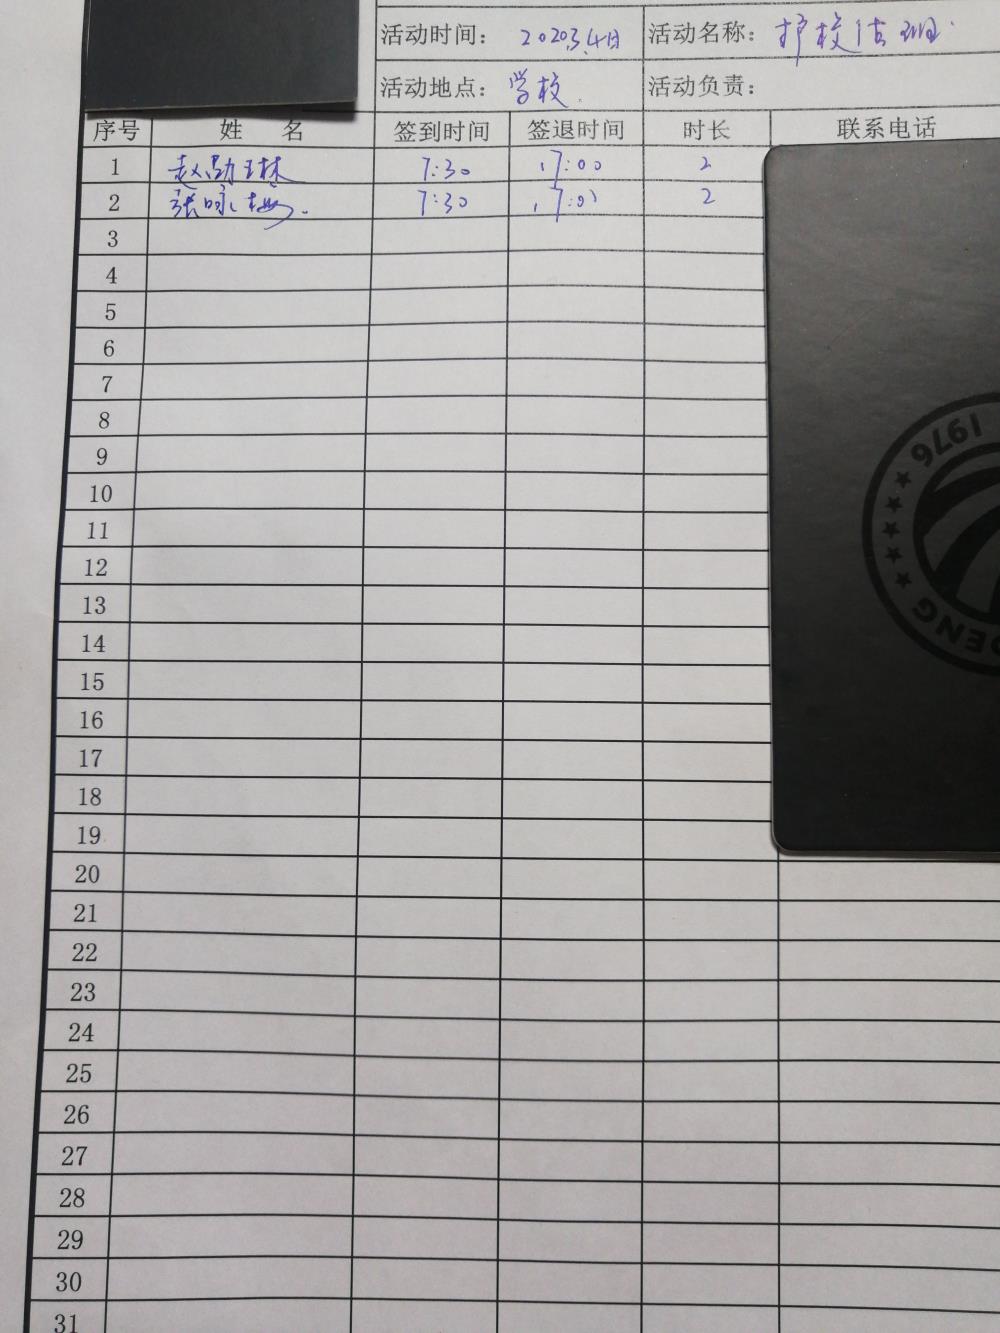 活动时间： 2020.3.4日 活动名称： 护校值班
活动地点： 学校 活动负责：
序号 姓 名 签到时间 签退时间 时长 联系电话
1 7:30 17:00 2
2 张咏梅 7:30 17:00 2
3
4
5
6
7
8
9
10
11
12
13
14
15
16
17
18
19
20
21
22
23
24
25
26
27
28
29
30
31
1976